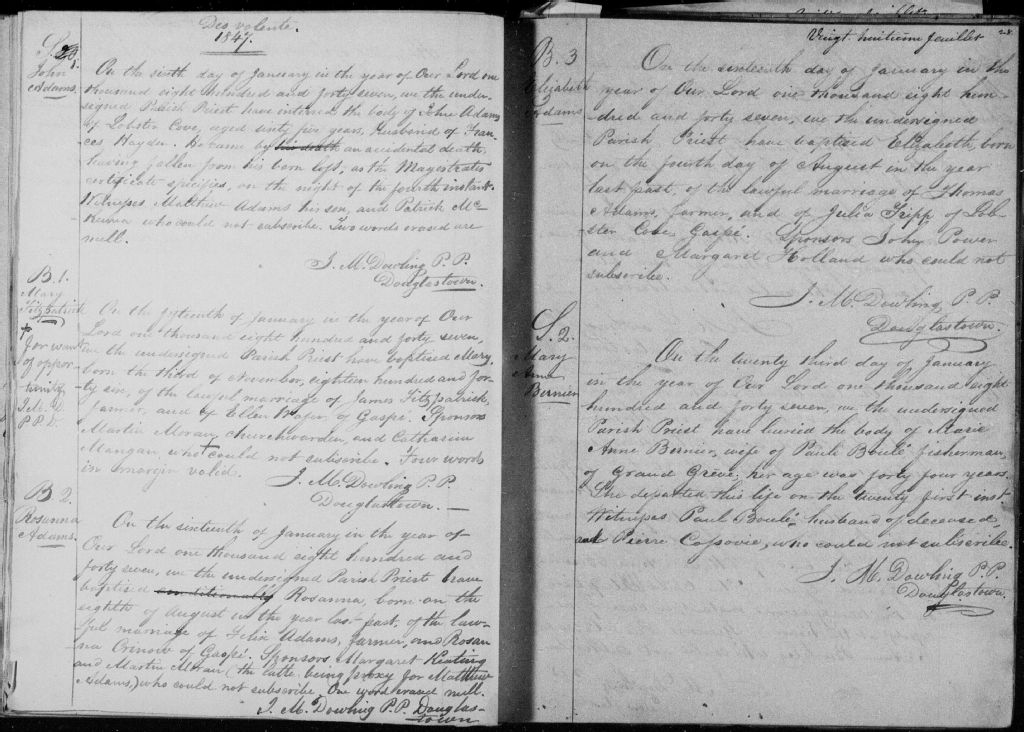 Deo volente.
1847.
S. 1.
John
Adams.
On the sixth day of January in the year of Our Lord one
thousand eight hundred and forty seven, we the under-
signed Parish Priest have interred the body of John Adams
of Lobster Cove, aged sixty five years, husband of Fran-
ces Hayden. He came by his death an accidental death
having fallen from his barn loft, as the Magistrate's
certificate specifies, on the night of the fourth instant.
Witnesses Matthew Adams his son, and Patrick Mc-
Kenna who could not subscribe. Two words erased are
null.
J. M. Dowling P. P.
Douglastown.
B. 1.
Mary
Fitzpatrick
+
for want
of oppor
tunity
P.P.D.
On the fifteenth of January in the year of Our
Lord one thousand eight hundred and forty seven,
we the undersigned Parish Priest have baptised Mary,
born the third of November, eighteen hundred and for-
ty six, of the lawful marriage of James Fitzpatrick,
farmer, and of Ellen of Gaspé. Sponsors
Martin Moran, churchwarden, and Catharine
Mangan, who could not subscribe. Four words
in margin valid.
J. M. Dowling P. P.
Douglastown.
B 2.
Rosanna
Adams.
On the sixteenth of January in the year of
Our Lord one thousand eight hundred and
forty seven, we the undersigned Parish Priest have
baptised conditionally Rosanna, born on the
eighth of August in the year last past, of the law-
ful marriage of Felix Adams, farmer, and Rosan-
na of Gaspé. Sponsors Margaret Keating
and Martin Moran (the latter being proxy for Matthew
Adams,) who could not subscribe. One word erased null.
J. M. Dowling P.P. Douglas-
town
Vingt-huitième feuillet
28.
B. 3
Elizabeth
Adams
On the sixteenth day of January in the
year of Our Lord one thousand eight hun-
dred and forty seven, we the undersigned
Parish Priest have baptised Elizabeth, born
on the fourth day of August in the year
last past, of the lawful marriage of Thomas
Adams, farmer, and of Julia Tripp of Lob-
ster Cove Gaspé. Sponsors John Power
and Margaret Holland who could not
subscribe.
J. M. Dowling P. P.
Douglastown.
S. 2.
Mary
Anne
Bernier
On the twenty third day of January
in the year of Our Lord one thousand eight
hundred and forty seven, we the undersigned
Parish Priest have buried the body of Marie
Anne Bernier, wife of Paul Boulé fisherman,
of Grand Greve; her age was forty four years.
She departed this life on the twenty first inst.
Witnesses Paul Boulé husband of deceased,
and Pierre who could not subscribe.
J. M. Dowling P. P.
Douglastown.